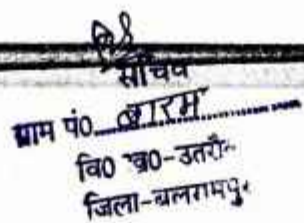 सचिव
ग्राम पं0 बारम
वि0 ख0-उतरौ
जिला-बलरामपुर